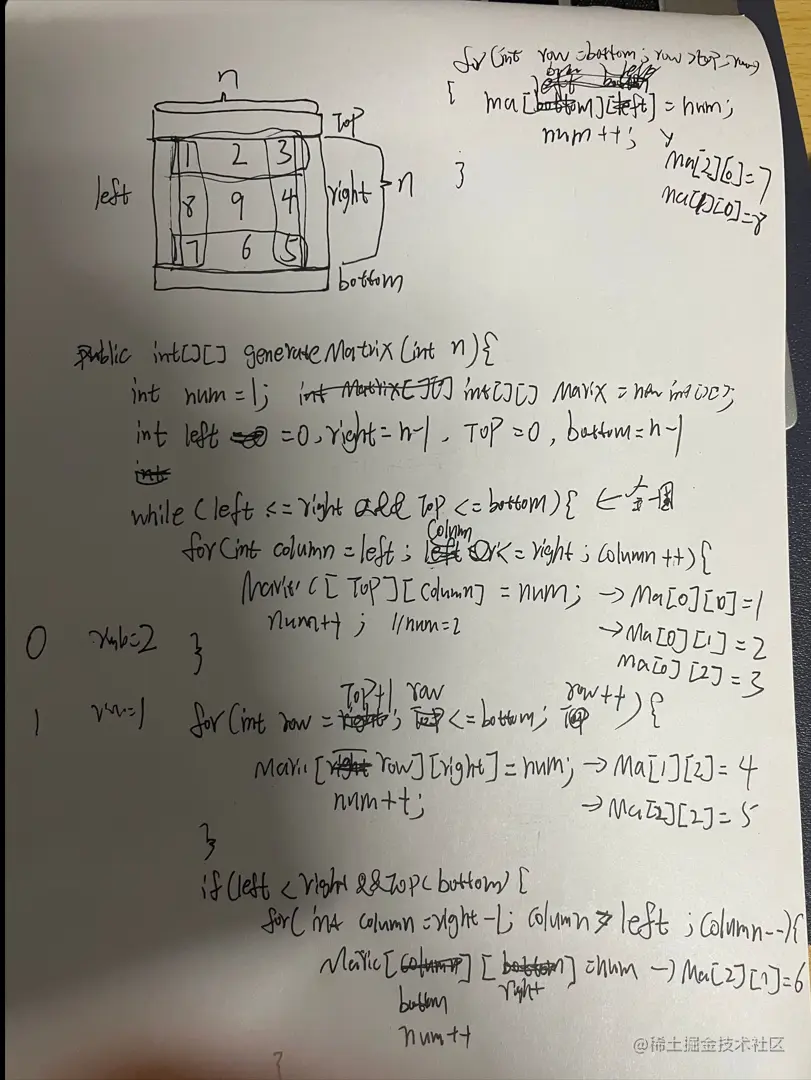 n
Top
1 2 3
left 8 9 4 right n
7 6 5
bottom
for(int row=bottom; row>top; row
{ ma[][] = num;
num++;
}
Ma[2][0]=7
ma[1][0]=8
public int[][] generateMatrix(int n){
int num=1; int[][] Marix = new int[][];
int left =0, right=n-1, Top=0, bottom=n-1
while (left <= right && Top <= bottom){ ←
for(int column=left; column <= right; column++){
[Top][column] = num; → Ma[0][0]=1
num++; //num=2 → Ma[0][1]=2
0 }
Ma[0][2]=3
1 for(int row = Top+1; row <= bottom; row++){
[row][right] = num; → Ma[1][2]=4
num++; → Ma[2][2]=5
}
if(left < right && Top < bottom){
for(int column=right-1; column > left; column--){
[bottom][right] = num → Ma[2][1]=6
num++
}
@稀土掘金技术社区